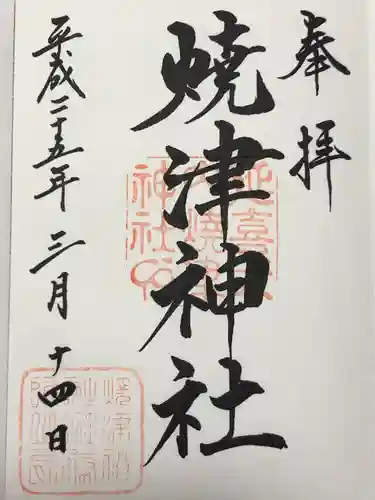 奉拝
焼津神社
平成二十五年三月十四日